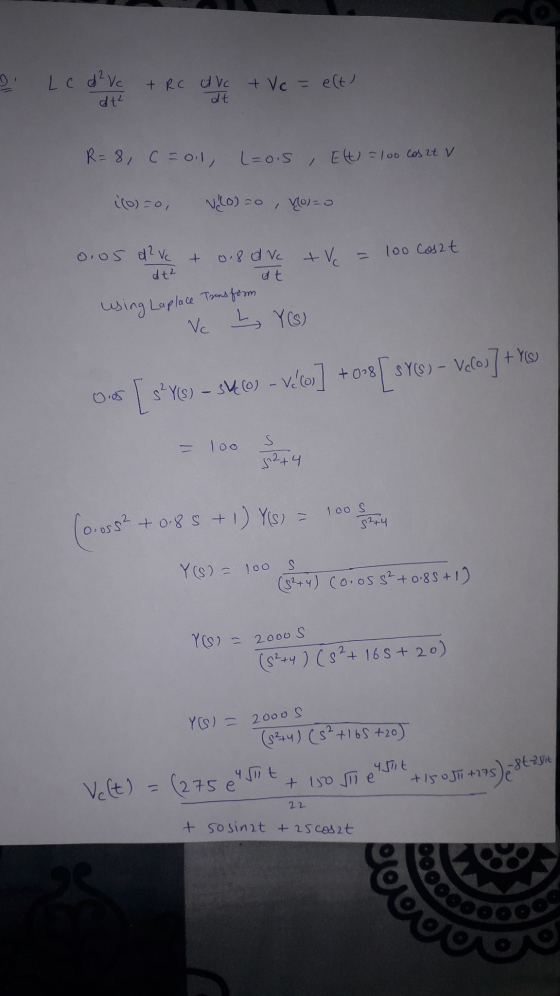 Q. LC d²Vc/dt² + RC dVc/dt + Vc = e(t)
R=8, C=0.1, L=0.5, E(t)=100 cos2t V
i(0)=0, Vc'(0)=0, Vc(0)=0
0.05 d²Vc/dt² + 0.8 dVc/dt + Vc = 100 cos2t
using Laplace Transform
Vc L→ Y(s)
0.05 [s²Y(s) - sVc(0) - Vc'(0)] + 0.8 [sY(s) - Vc(0)] + Y(s)
= 100 s/(s²+4)
(0.05s² + 0.8s + 1) Y(s) = 100 s/(s²+4)
Y(s) = 100 s/((s²+4)(0.05s² + 0.8s + 1))
Y(s) = 2000s/((s²+4)(s² + 16s + 20))
Y(s) = 2000s/((s²+4)(s²+16s+20))
Vc(t) = (275 e^(4√11 t) + 150√11 e^(4√11 t) + 150√11 + 275)e /22
+ 50sin2t + 25cos2t